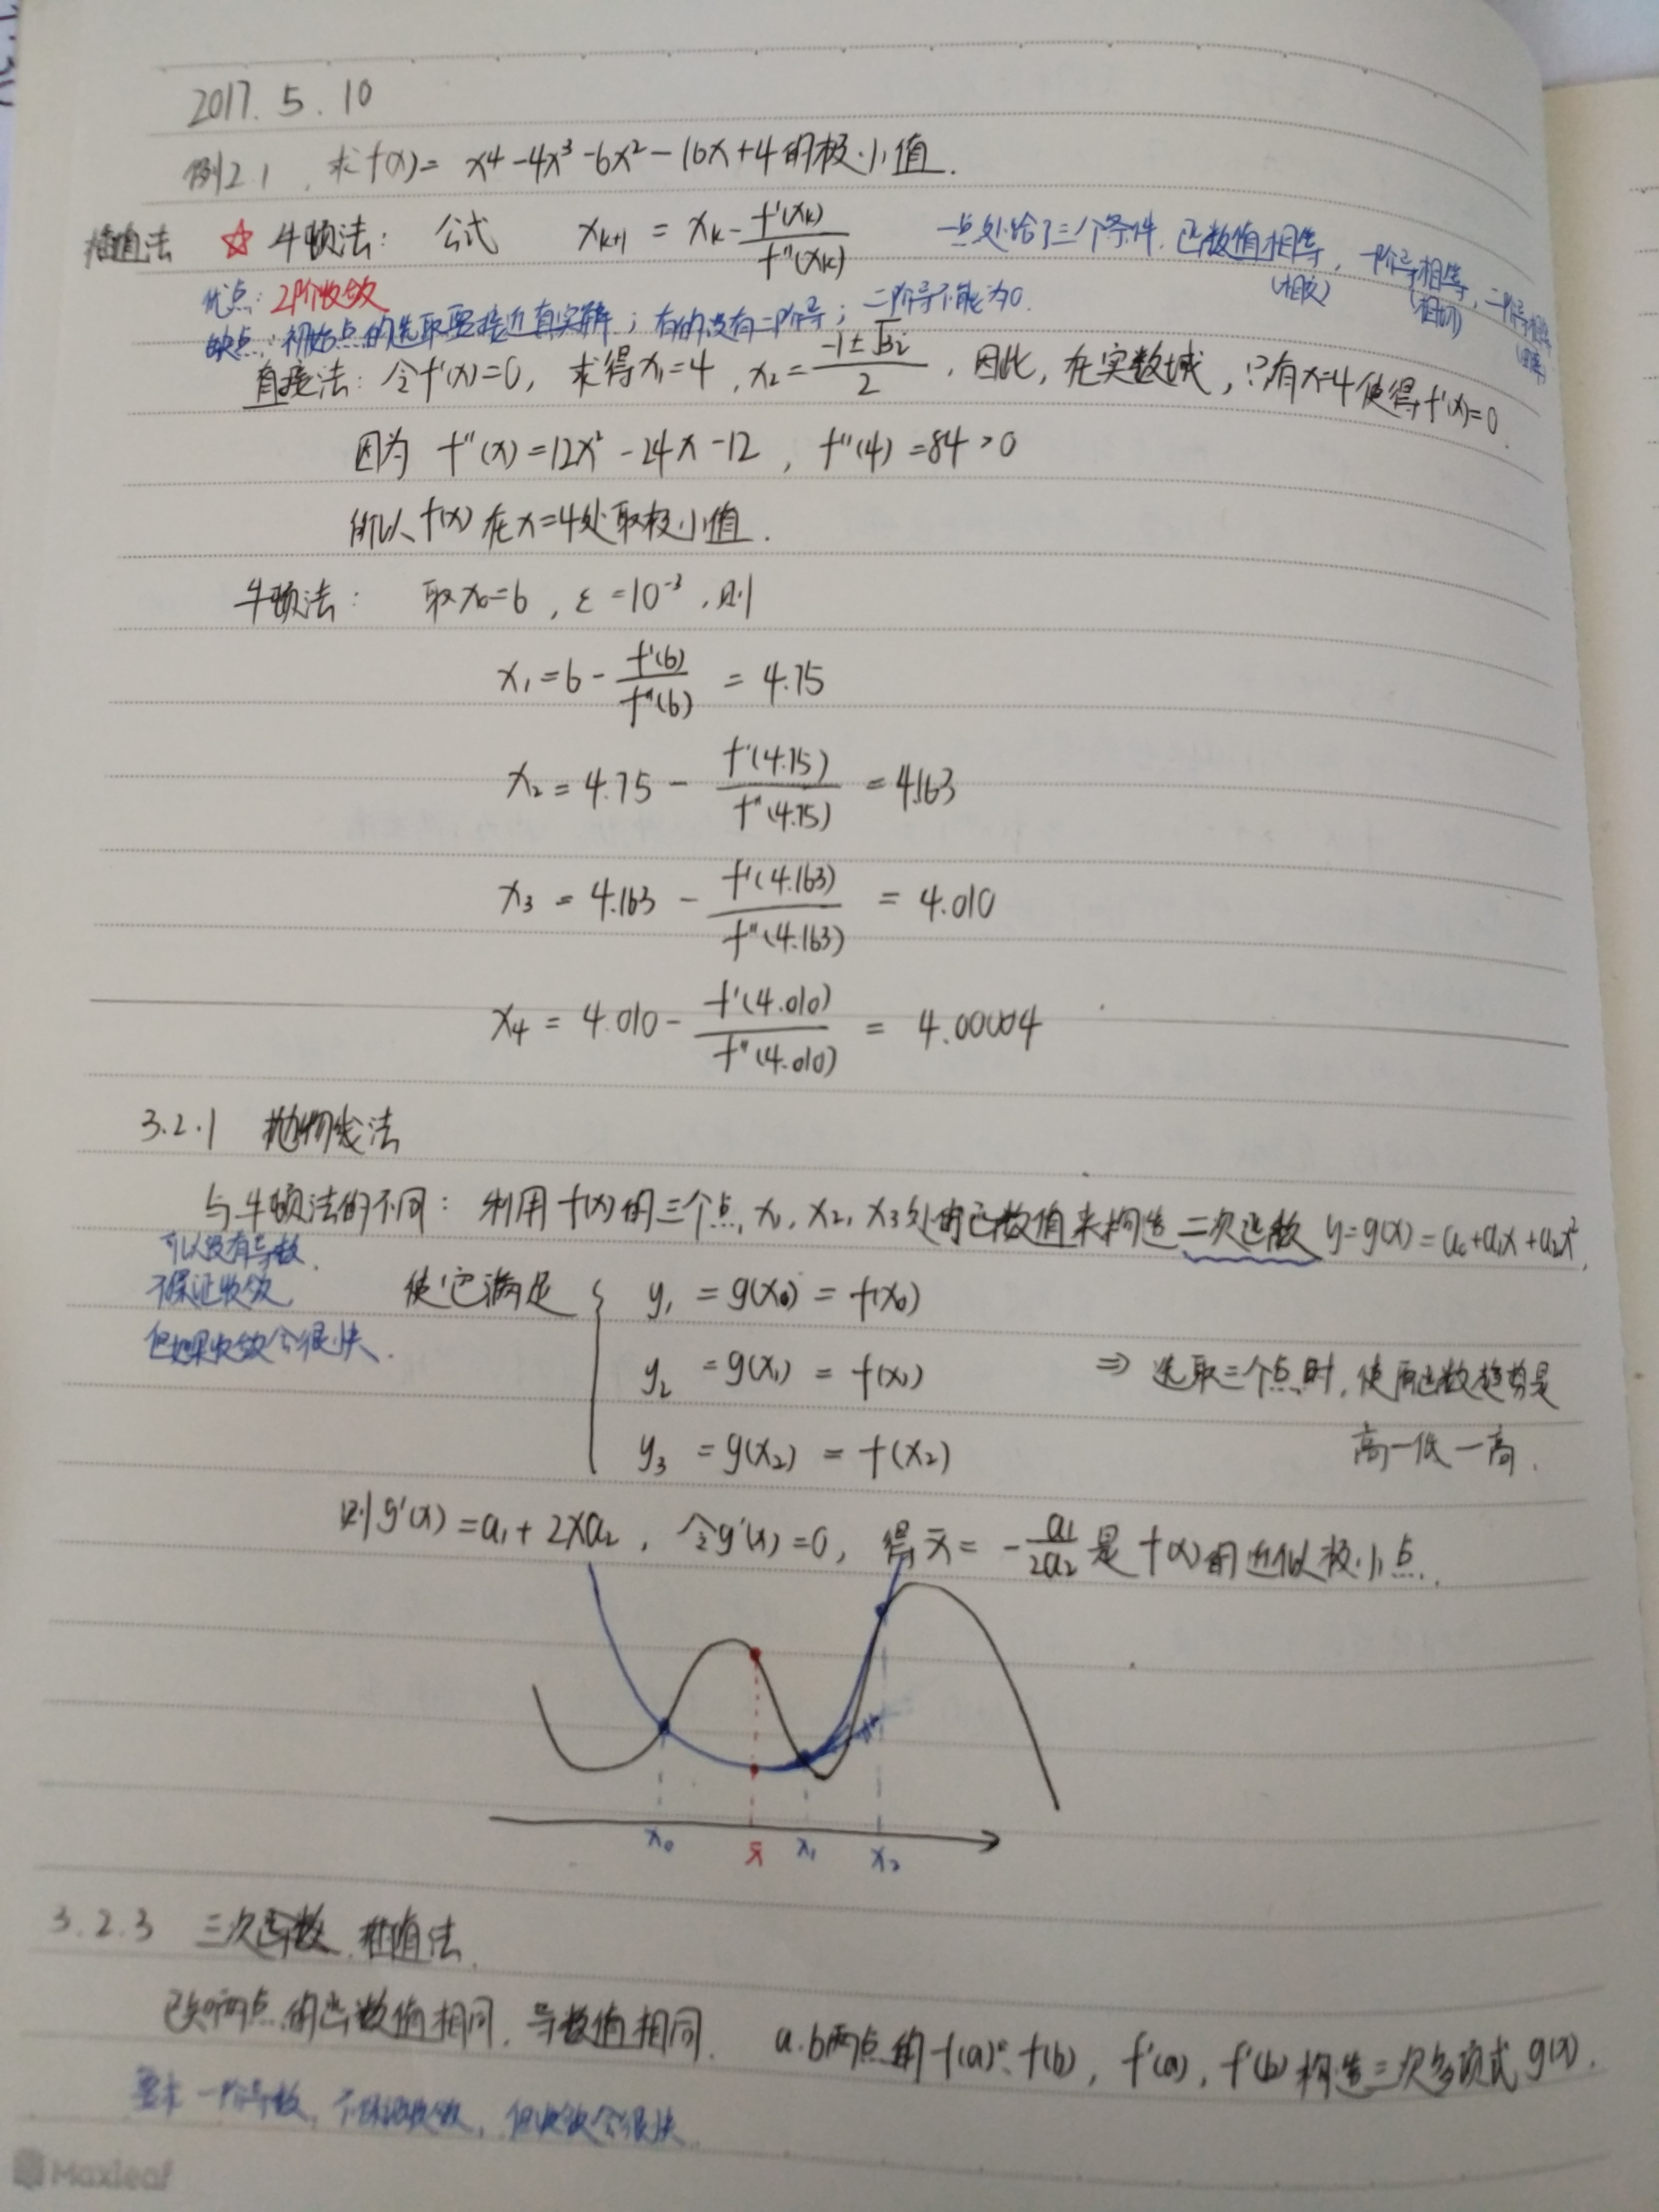 2017. 5. 10
例2.1, 求f(x)= x⁴-4x³-6x²-16x+4的极小值.
插值法 ☆ 牛顿法: 公式 xₖ₊₁ = xₖ - f'(xₖ)/f''(xₖ) 一点处给了三个条件, 函数值相等(相交), 一阶导相等(相切), 二阶导相等
优点: 2阶收敛
缺点: 初始点的选取要接近真实解; 有的没有二阶导; 二阶导不能为0.
直接法: 令f'(x)=0, 求得x₁=4, x₂= (-1±√3i)/2, 因此, 在实数域, 只有x=4使得f'(x)=0.
因为 f''(x)=12x²-24x-12, f''(4)=84>0
所以 f(x)在x=4处取极小值.
牛顿法: 取x₀=6, ε=10⁻³, 则
x₁=6 - f'(6)/f''(6) = 4.75
x₂=4.75 - f'(4.75)/f''(4.75) = 4.163
x₃ = 4.163 - f'(4.163)/f''(4.163) = 4.010
x₄ = 4.010 - f'(4.010)/f''(4.010) = 4.00004
3.2.1 抛物线法
与牛顿法的不同: 利用f(x)的三个点, x₁, x₂, x₃处的函数值来构造二次函数 y=g(x)=a₀+a₁x+a₂x²,
可以没有导数.
不保证收敛
但如果收敛会很快.
使它满足 { y₁ = g(x₀) = f(x₀)
y₂ = g(x₁) = f(x₁) ⇒ 选取三个点时, 使函数趋势是
y₃ = g(x₂) = f(x₂) 高—低—高.
则g'(x)=a₁+2xa₂, 令g'(x)=0, 得x̄ = -a₁/2a₂ 是f(x)的近似极小点.
x₀ x̄ x₁ x₂
3.2.3 三次函数插值法.
已知两点的函数值相同, 导数值相同. a.b两点的f(a), f(b), f'(a), f'(b)构造三次多项式g(x).
要求一阶导数, 不保证收敛, 但收敛会很快
Maxleaf